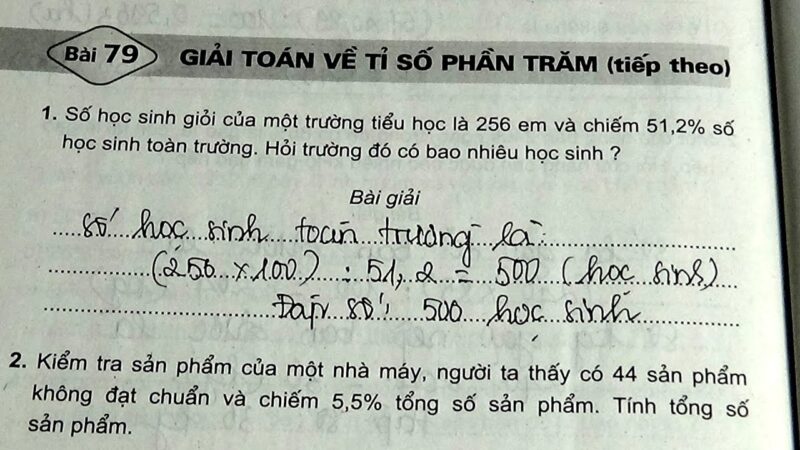 Bài 79 GIẢI TOÁN VỀ TỈ SỐ PHẦN TRĂM (tiếp theo)
1. Số học sinh giỏi của một trường tiểu học là 256 em và chiếm 51,2% số
học sinh toàn trường. Hỏi trường đó có bao nhiêu học sinh ?
Bài giải
số học sinh toàn trường là:
(256 x 100) : 51,2 = 500 (học sinh)
Đáp số: 500 học sinh
2. Kiểm tra sản phẩm của một nhà máy, người ta thấy có 44 sản phẩm
không đạt chuẩn và chiếm 5,5% tổng số sản phẩm. Tính tổng số
sản phẩm.